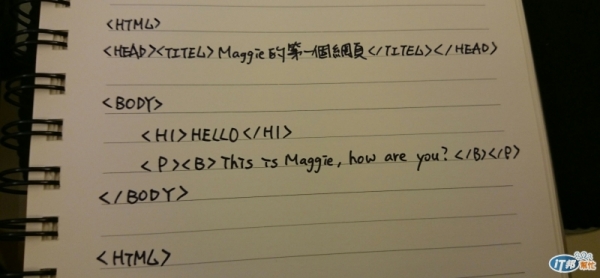 <HTML>
<HEAD><TITEL>Maggie的第一個網頁</TITEL></HEAD>
<BODY>
<H1>HELLO</H1>
<P><B>This is Maggie, how are you?</B></P>
</BODY>
<HTML>
iT邦幫忙